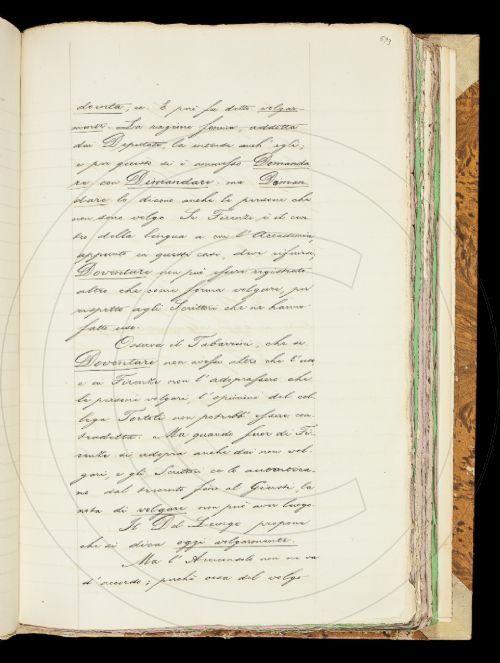 699
dovuta, ec. E può fu detto volgar-
mente. La ragione forma, addotta
dai Deputato, la intende anch' egli;
e per questo si è ammesso Domanda
re con Dimandare. ma Diman
dare lo dicono anche le persone che
non sono volgo. Se Firenze è il cen
tro della lingua a cui l' Accademia,
appunto in questi casi, deve riferirsi,
Doventare non può essere registrato
altro che come forma volgare, per
rispetto agli Scrittori che ne hanno
fatto uso.
Osserva il Tabarrini, che se
Doventare non avesse altro che l'uso,
e in Firenze non l'adoprassero che
le persone volgari, l'opinione del col
lega Tortoli non potrebb' essere con
tradetta. Ma quando fuor di Fi-
renze si adopra anche dai non vol-
gari, e gli Scrittori ce lo autentica
no dal trecento fino al Giusti, la
nota di volgare non può aver luogo.
Il Del Lungo propone
che si dica oggi volgarmente.
Ma l' Arciconsolo non ne va
d'accordo; poichè ossa del volgo